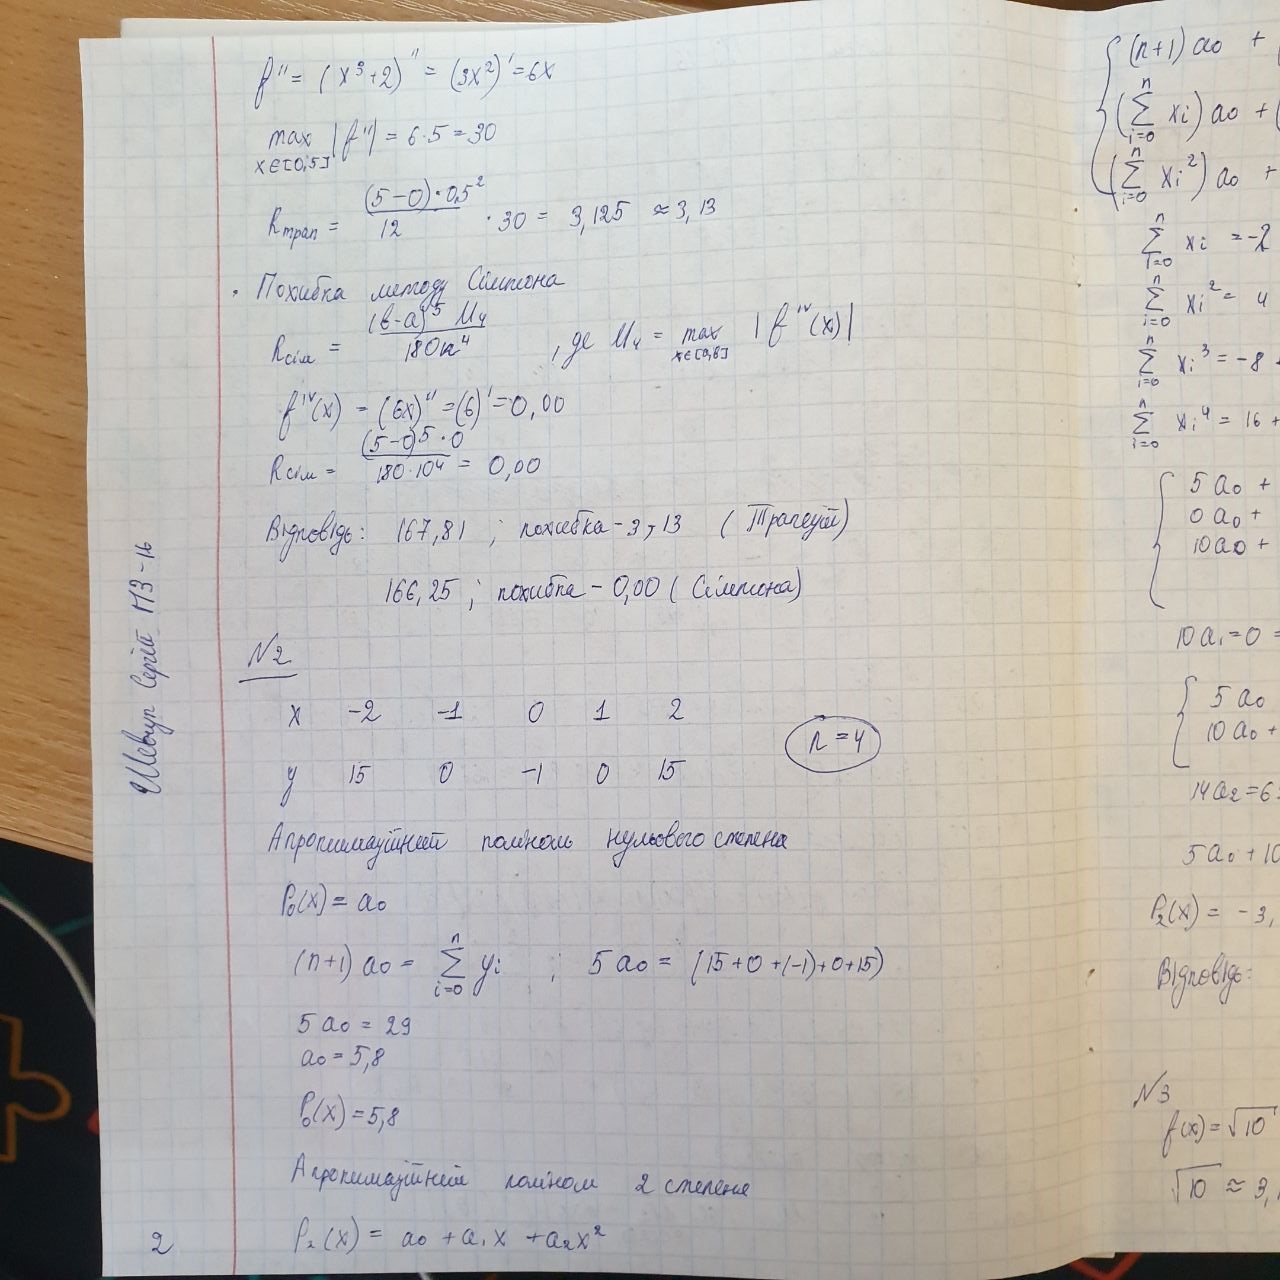 f'' = (x³+2)'' = (3x²)' = 6x
max |f''| = 6·5 = 30
x∈[0,5]
Rтрап = (5-0)·0,5² / 12 · 30 = 3,125 ≈ 3,13
· Похибка методу Сімпсона
Rсім = (b-a)⁵ M₄ / 180n⁴ , де M₄ = max |f^IV(x)|
x∈[a,b]
f^IV(x) = (6x)'' = (6)' = 0,00
Rсім = (5-0)⁵·0 / 180·10⁴ = 0,00
Відповідь: 167,81 ; похибка - 3,13 (Трапецій)
166,25 ; похибка - 0,00 (Сімпсона)
№2
x -2 -1 0 1 2
y 15 0 -1 0 15
n = 4
Апроксимаційний поліном нульового степеня
P₀(x) = a₀
(n+1) a₀ = Σ yi ; 5a₀ = (15+0+(-1)+0+15)
n
i=0
5a₀ = 29
a₀ = 5,8
P₀(x) = 5,8
Апроксимаційний поліном 2 степеня
P₂(x) = a₀ + a₁x + a₂x²
2
Сергій ПЗ-16
(n+1) a₀ +
(Σ xi) a₀ + (
n
i=0
(Σ xi²) a₀ +
n
i=0
Σ xi = -2
n
i=0
Σ xi² = 4
n
i=0
Σ xi³ = -8
n
i=0
Σ xi⁴ = 16 +
n
i=0
5a₀ +
0a₀ +
10a₀ +
10a₁ = 0 =
5a₀
10a₀ +
14a₂ = 6
5a₀ + 10
P₂(x) = -3,
Відповідь:
№3
f(x) = √10
√10 ≈ 3,